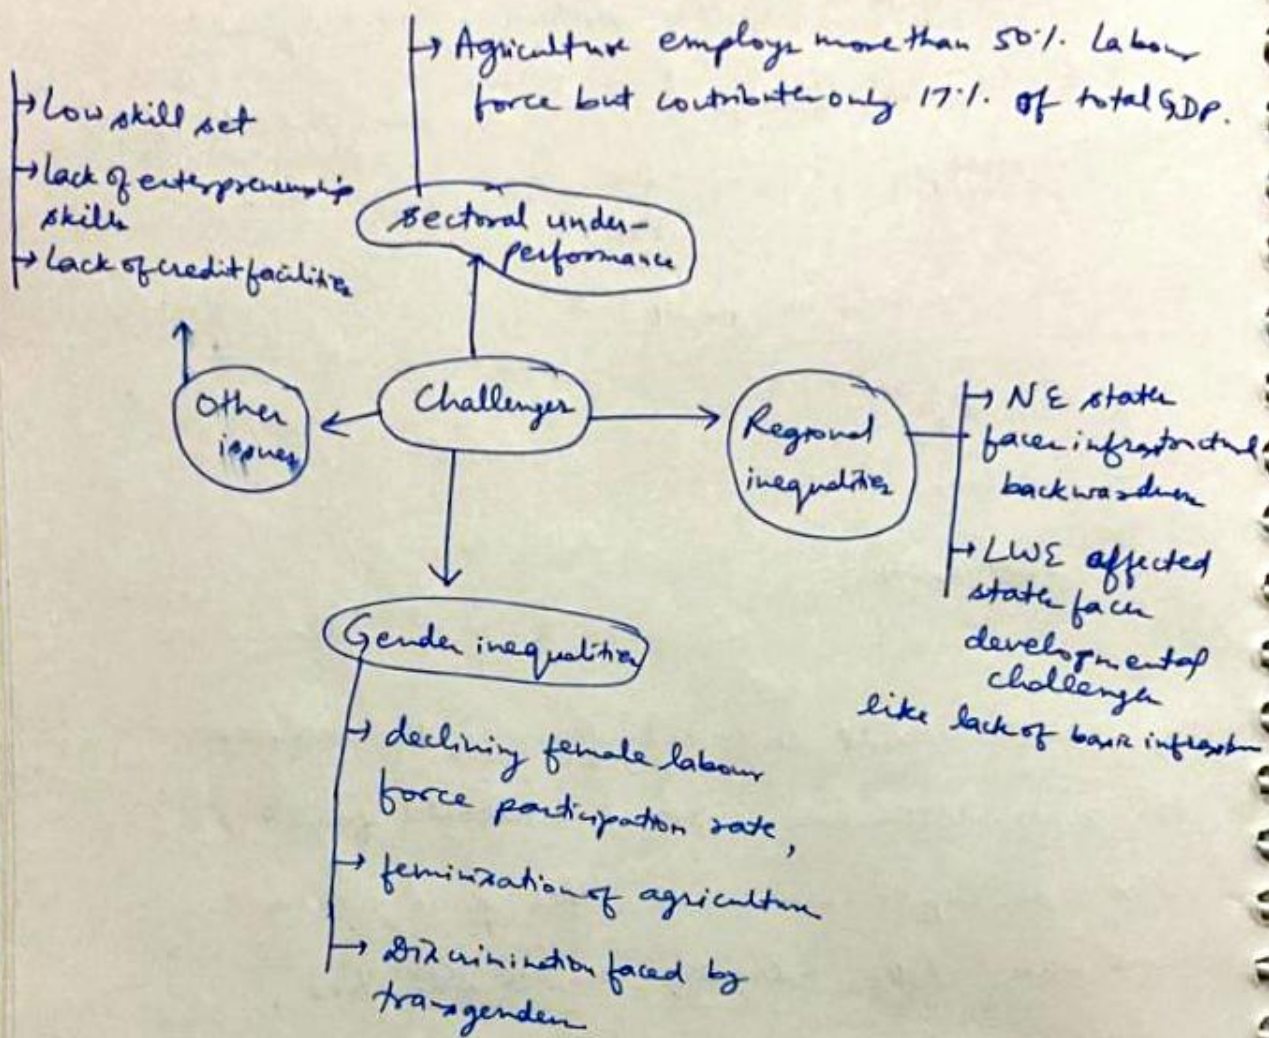 → Agriculture employs more than 50%. Labour
force but contributes only 17%. of total GDP.
→ Low skill set
→ lack of enterpreneurship
skills
→ Lack of credit facilities
Sectoral under-
performance
Challenges
Other
issues
Regional
inequalities
→ NE states
faces infrastructural
backwardness
→ LWE affected
states faces
developmental
challenges
like lack of basic
Gender inequalities
→ declining female labour
force participation rate,
→ feminization of agriculture
→ Discrimination faced by
transgenders